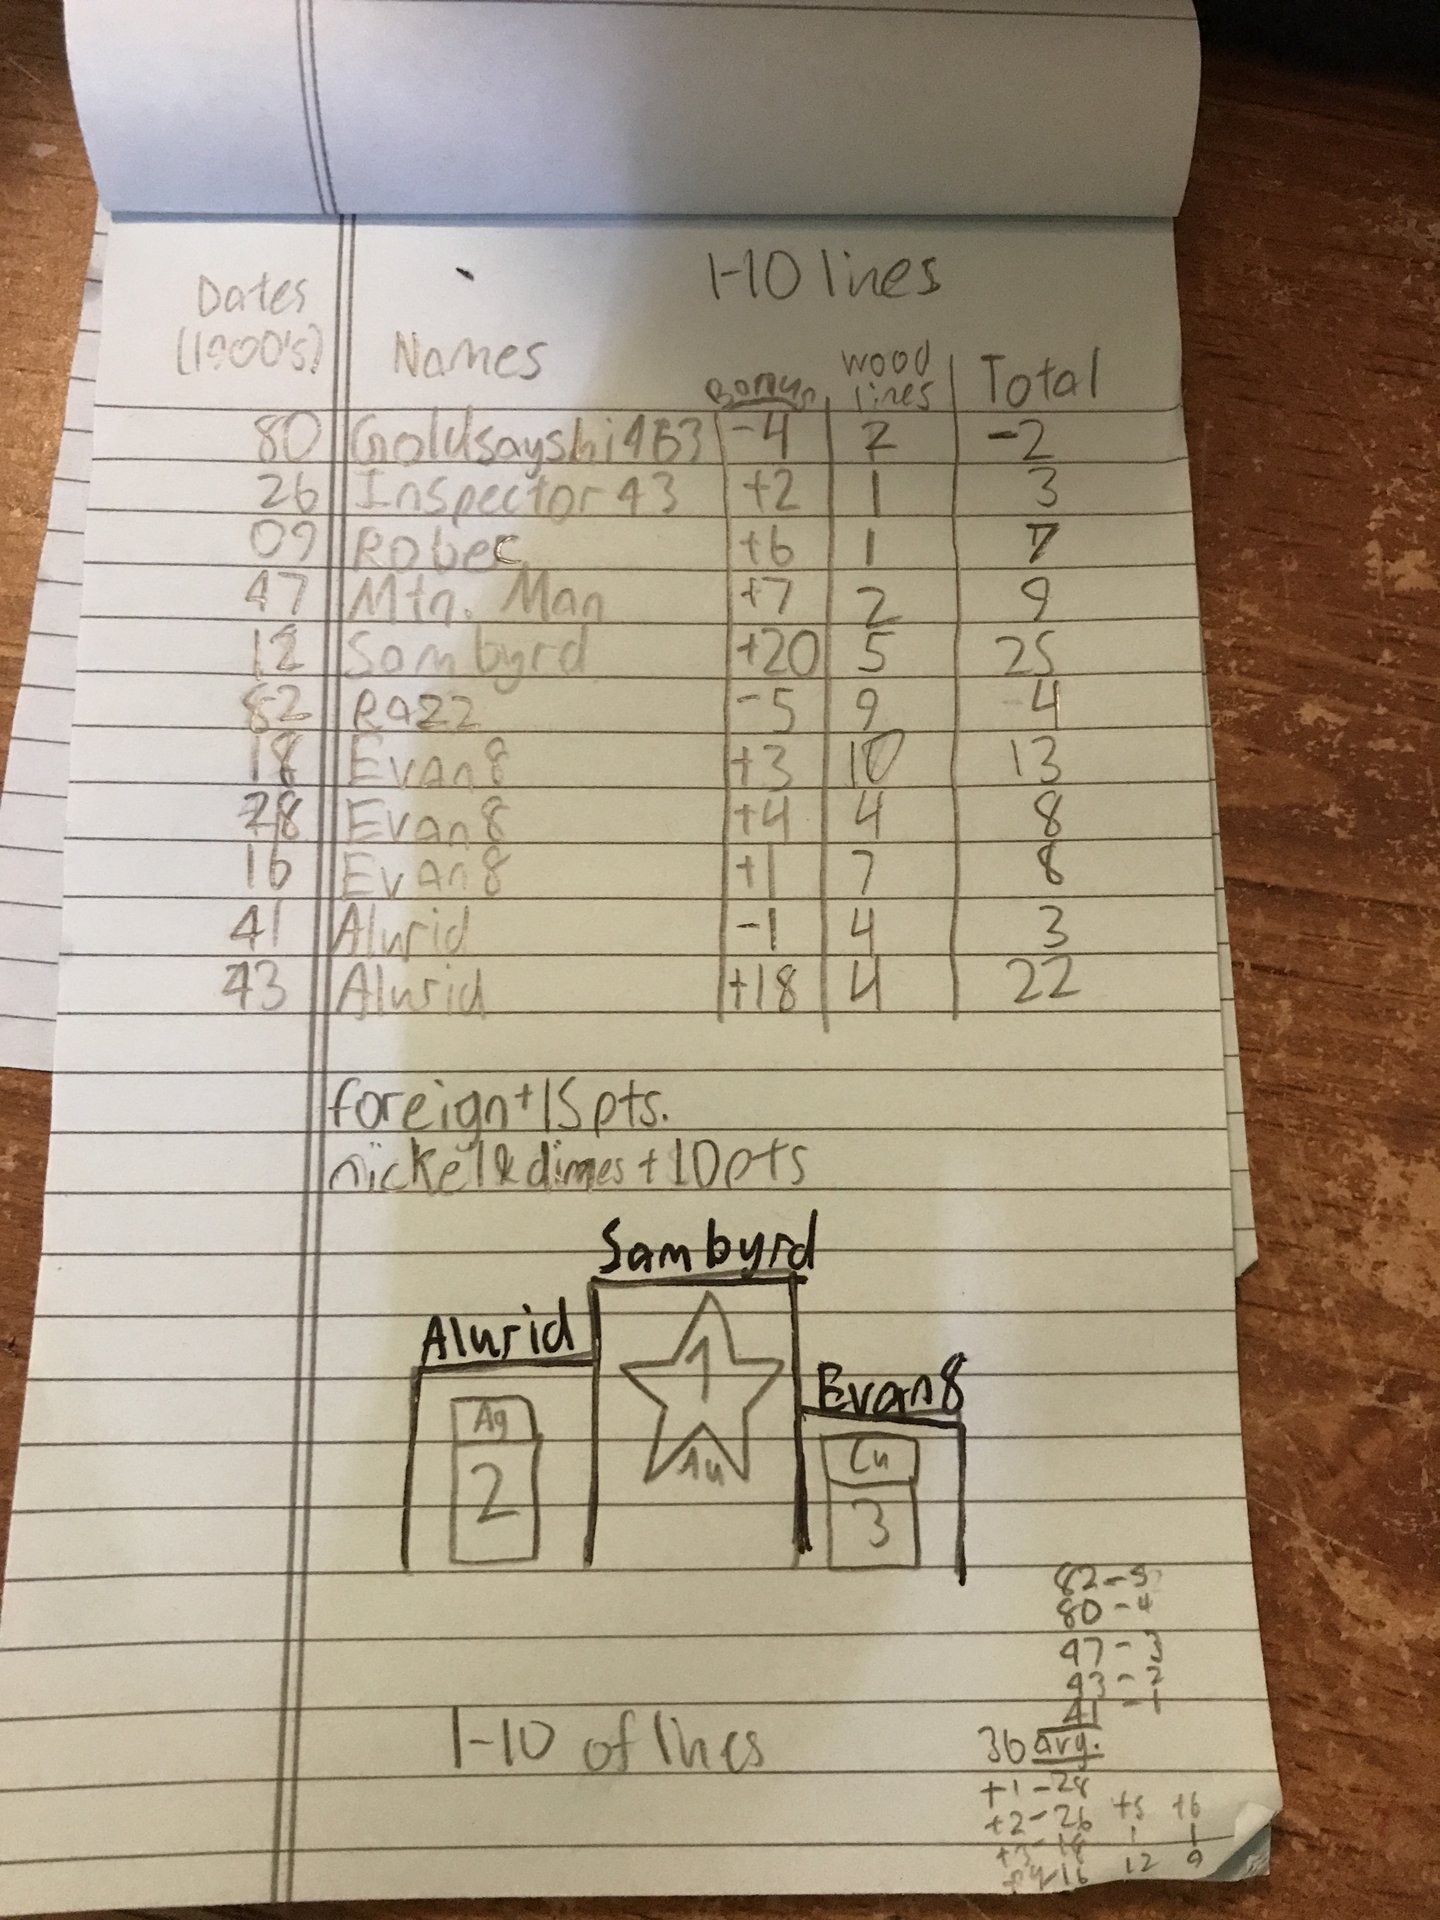 1-10 lines
Dates
(1900's)
Names
Bonus
wood
lines
Total
80 Goldsayshi463 -4 2 -2
26 Inspector 43 +2 1 3
09 Robec +6 1 7
47 Mtn. Man +7 2 9
12 Sambyrd +20 5 25
82 Razz -5 9 -4
18 Evan8 +3 10 13
28 Evan8 +4 4 8
16 Evan8 +1 7 8
41 Alurid -1 4 3
43 Alurid +18 4 22
foreign +15pts.
nickel & dimes +10pts
Sambyrd
Alurid
1
Evan8
Ag
Au
Cu
2
3
82-5
80-4
47-3
43-2
41-1
1-10 of lines
36 avg.
+1-28
+2-26 +5 +6
+3-18 1 1
+4-16 12 9